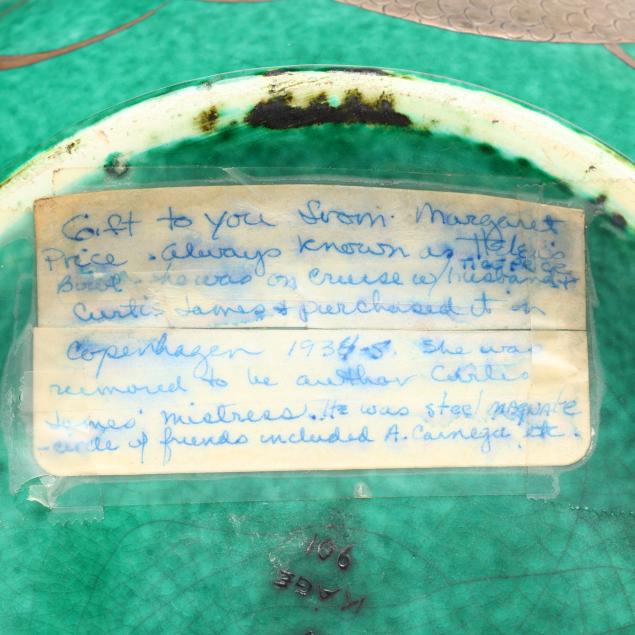 Gift to you from Margaret
Price . always known as
Bowl - he was on cruise w/ husband +
Curtis James + purchased it in
Copenhagen 1934-5. She was
rumored to be author Curtis
James' mistress. He was steel magnate
- circle of friends included A. Carnegie etc.
106
KÅGE